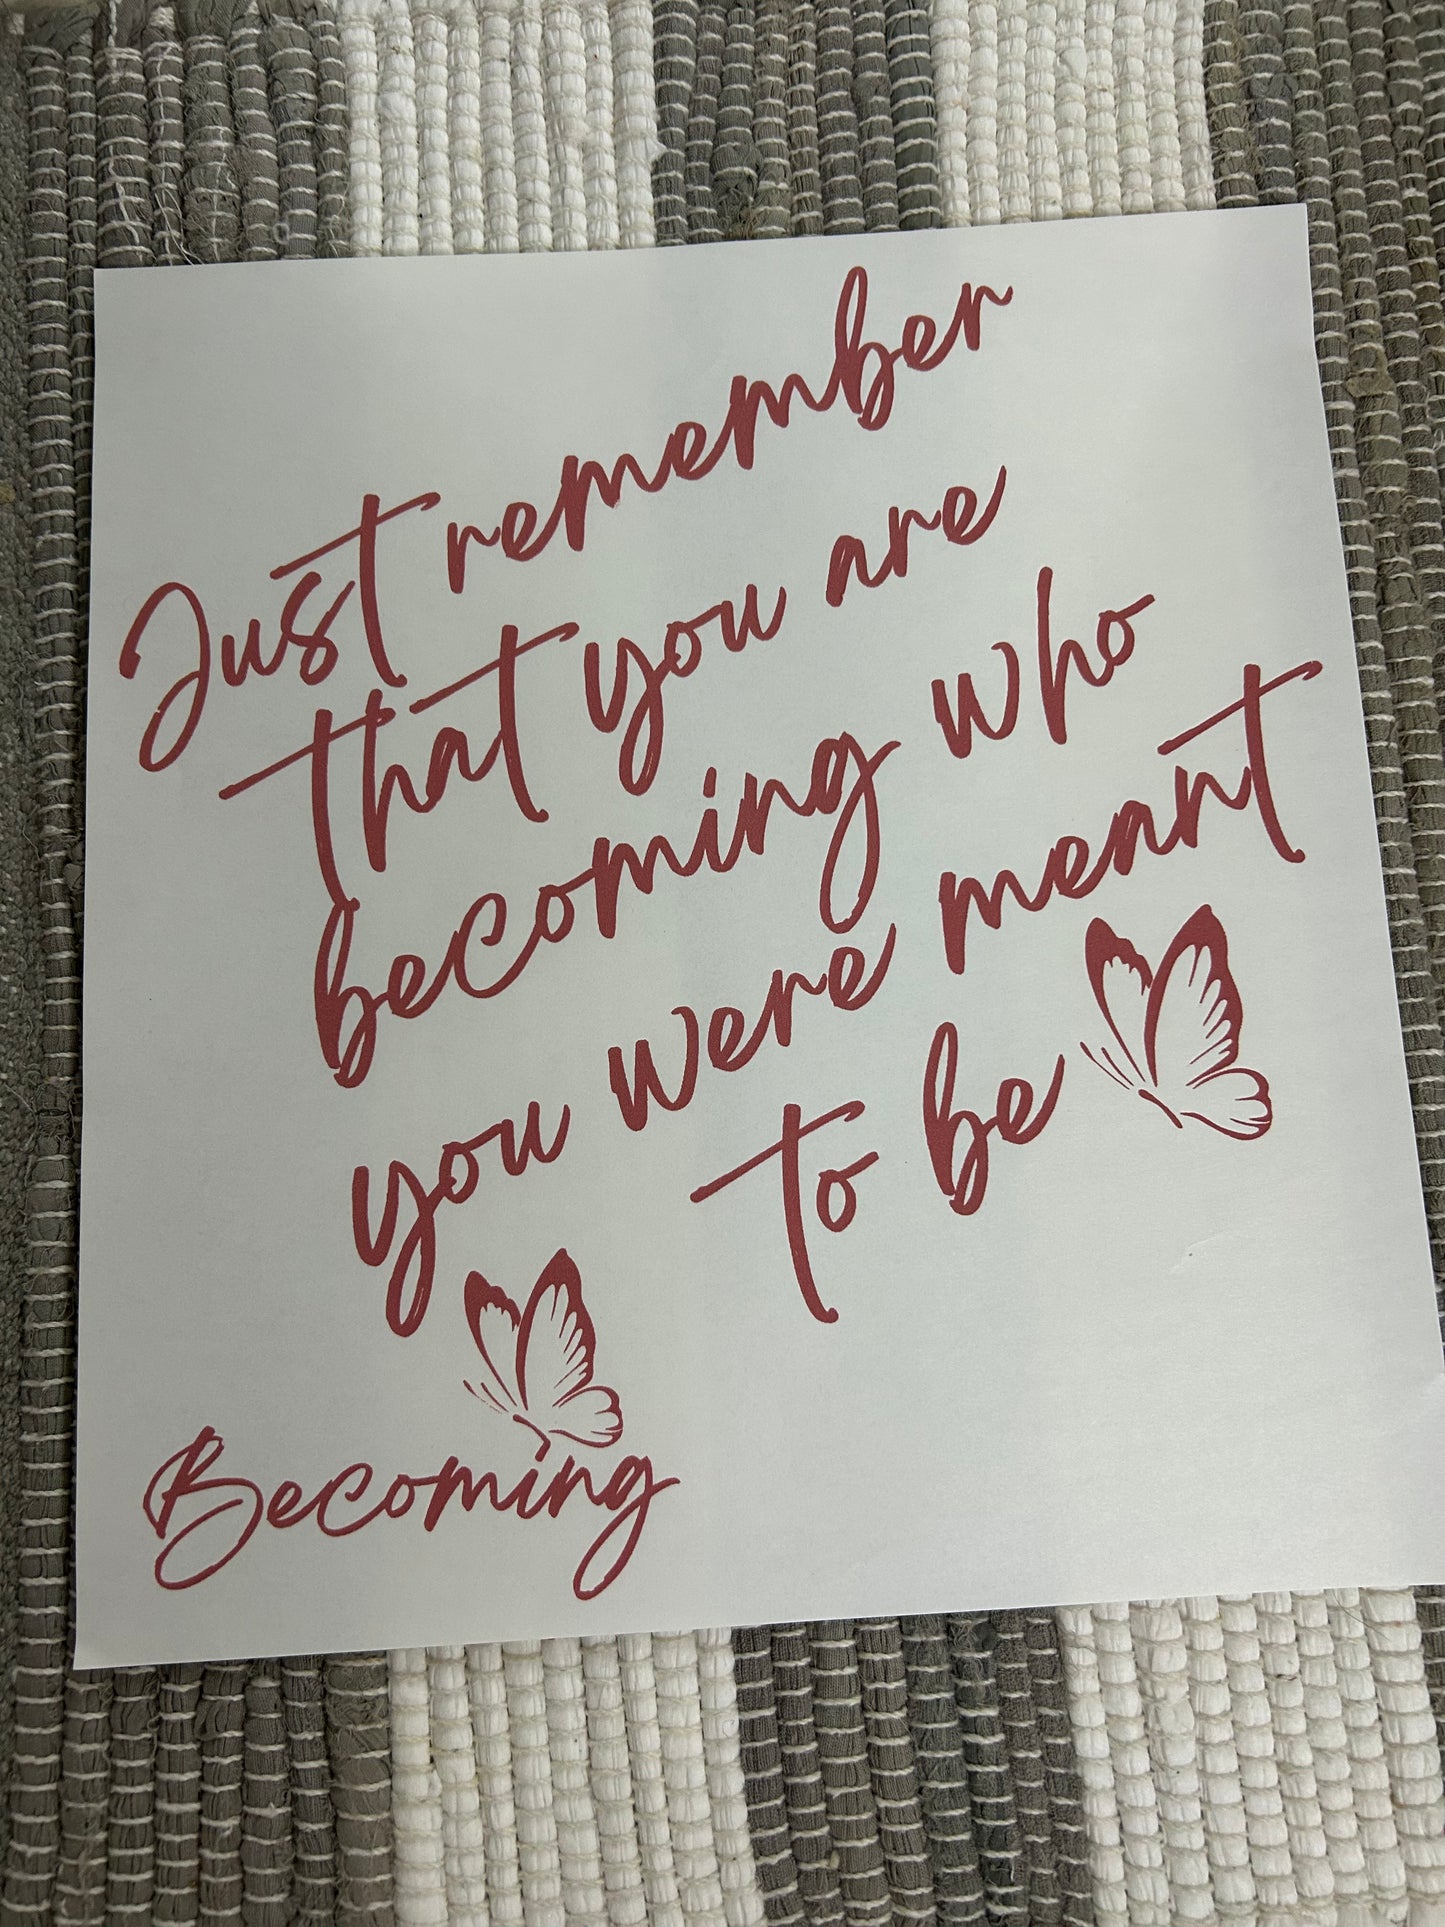 Just remember
that you are
becoming who
you were meant
to be
Becoming